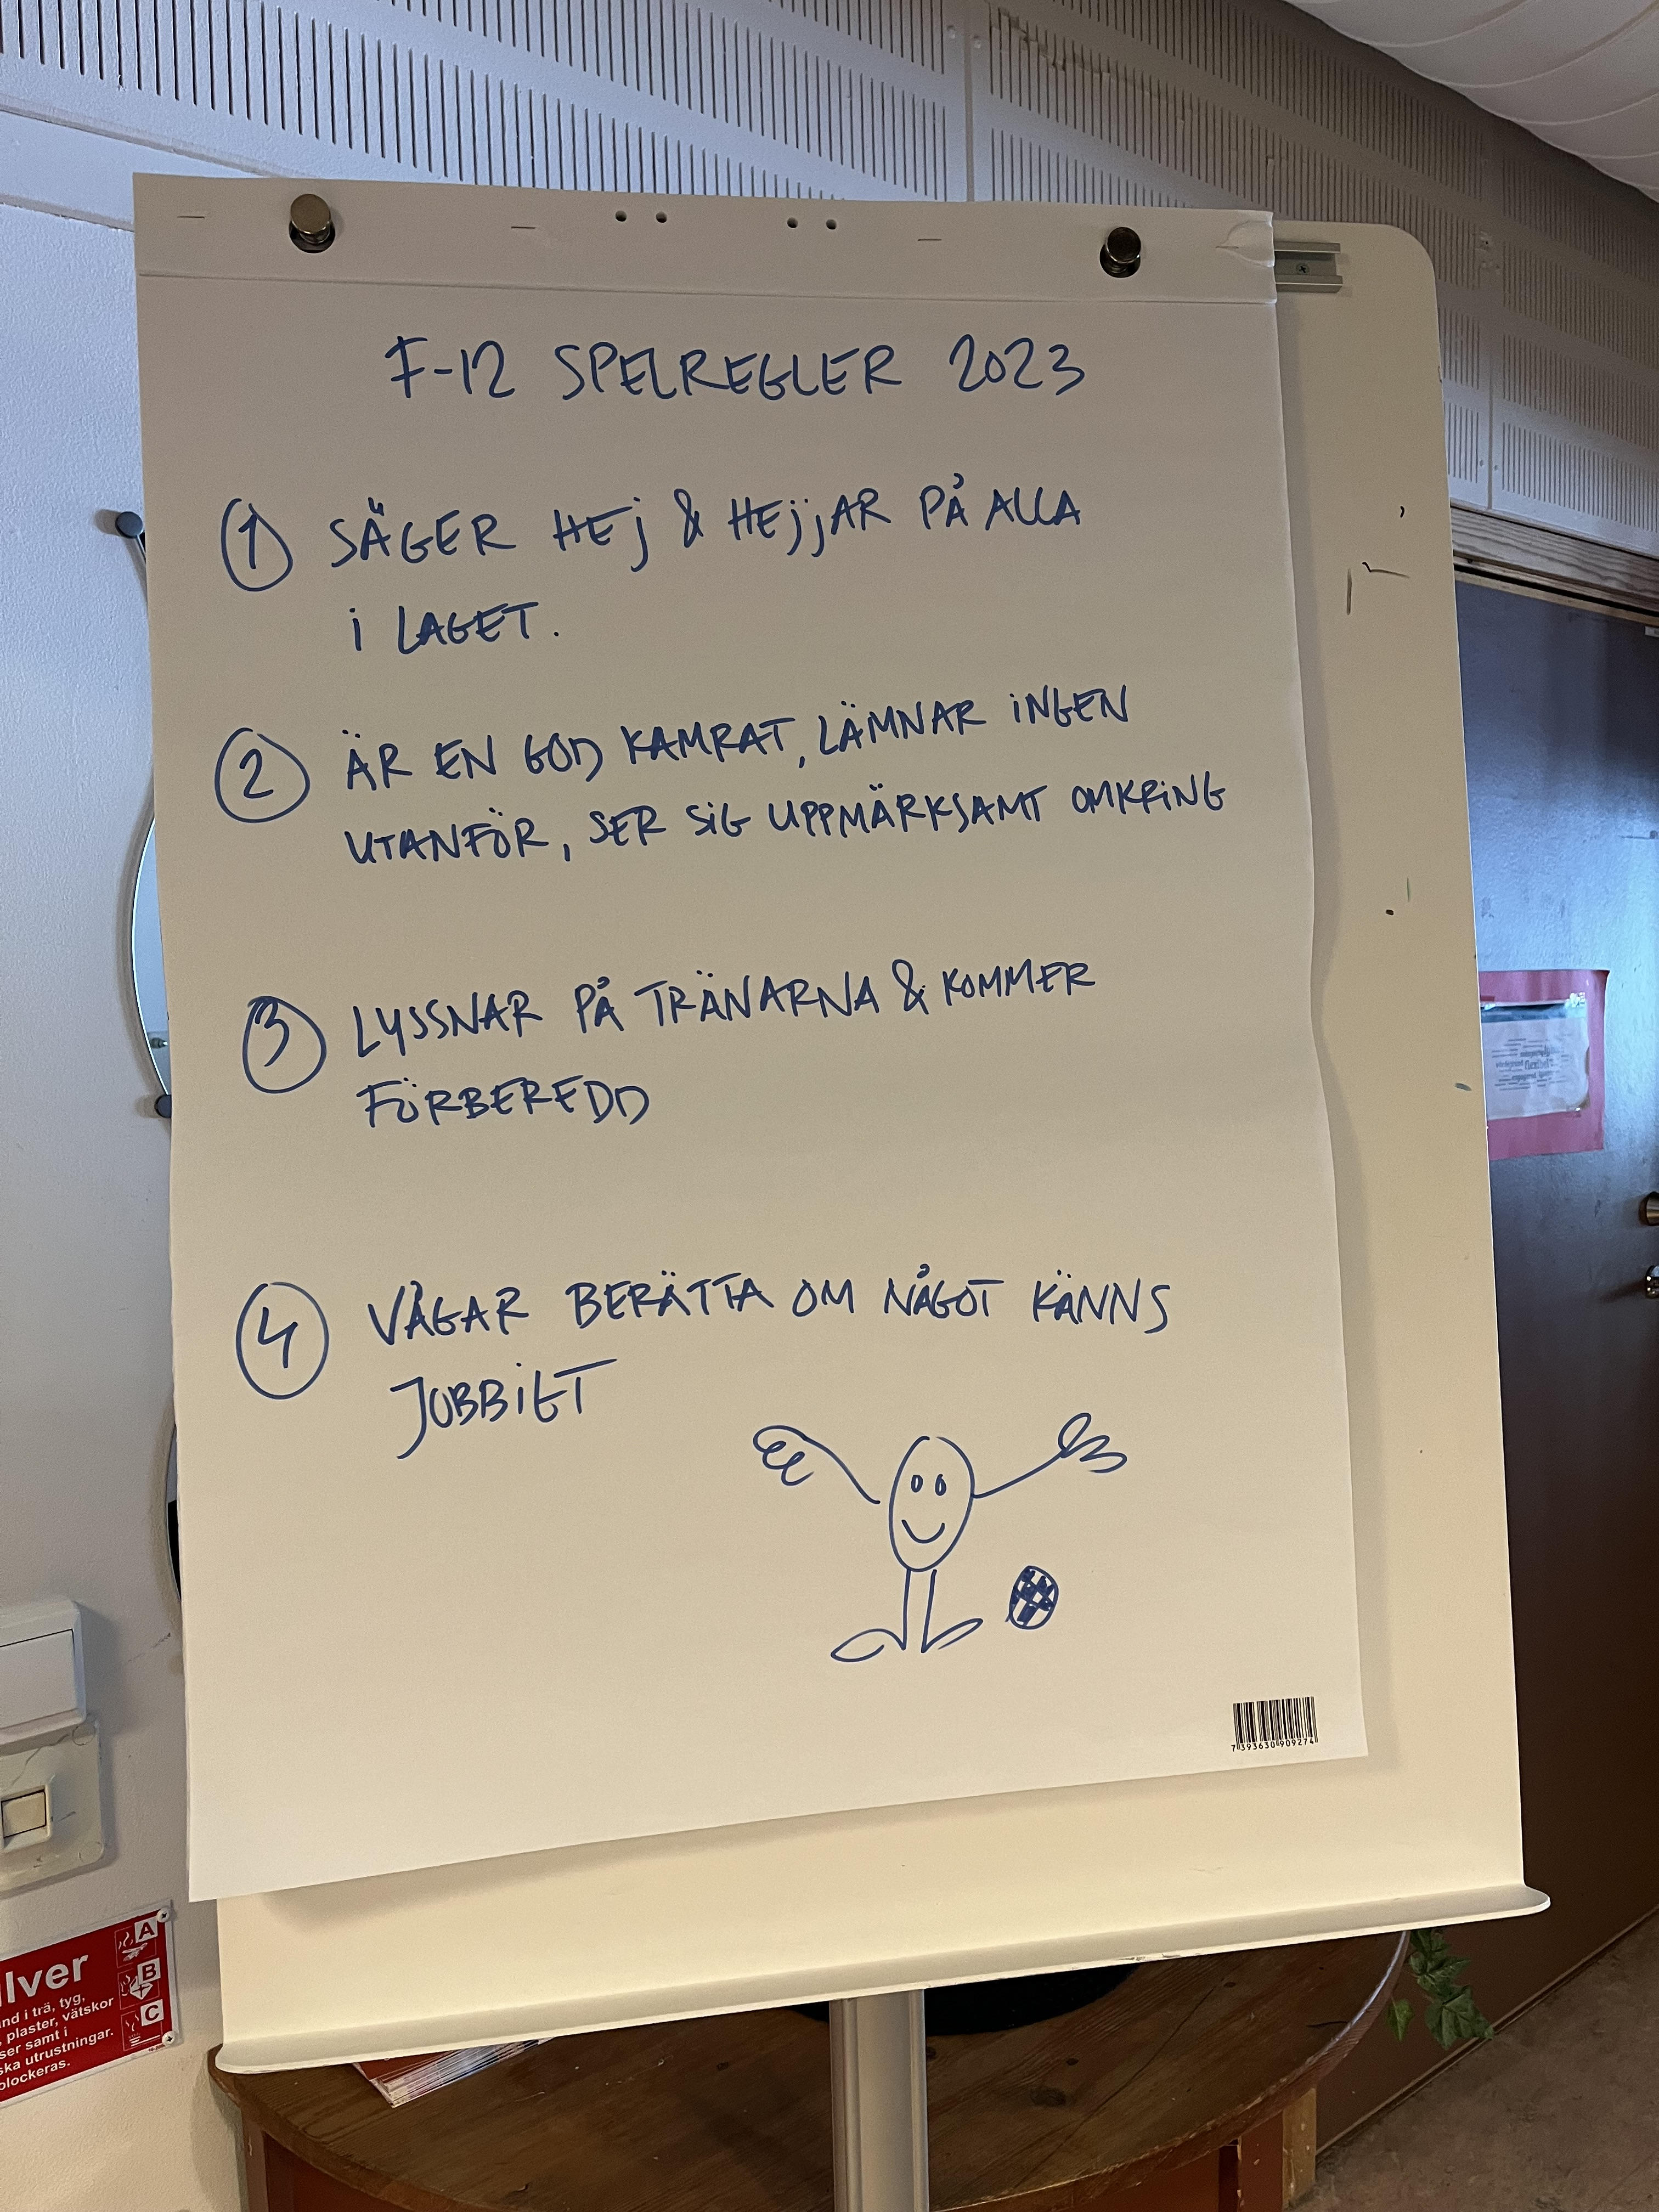 F-12 SPELREGLER 2023
1 SÄGER HEJ & HEJJAR PÅ ALLA
I LAGET.
2 ÄR EN GOD KAMRAT, LÄMNAR INGEN
UTANFÖR, SER SIG UPPMÄRKSAMT OMKRING
3 LYSSNAR PÅ TRÄNARNA & KOMMER
FÖRBEREDD
4 VÅGAR BERÄTTA OM NÅGOT KÄNNS
JOBBIGT
7 393630 909274
lver
A
B
C
nd i trä, tyg,
, plaster, vätskor
ser samt i
ska utrustningar.
blockeras.